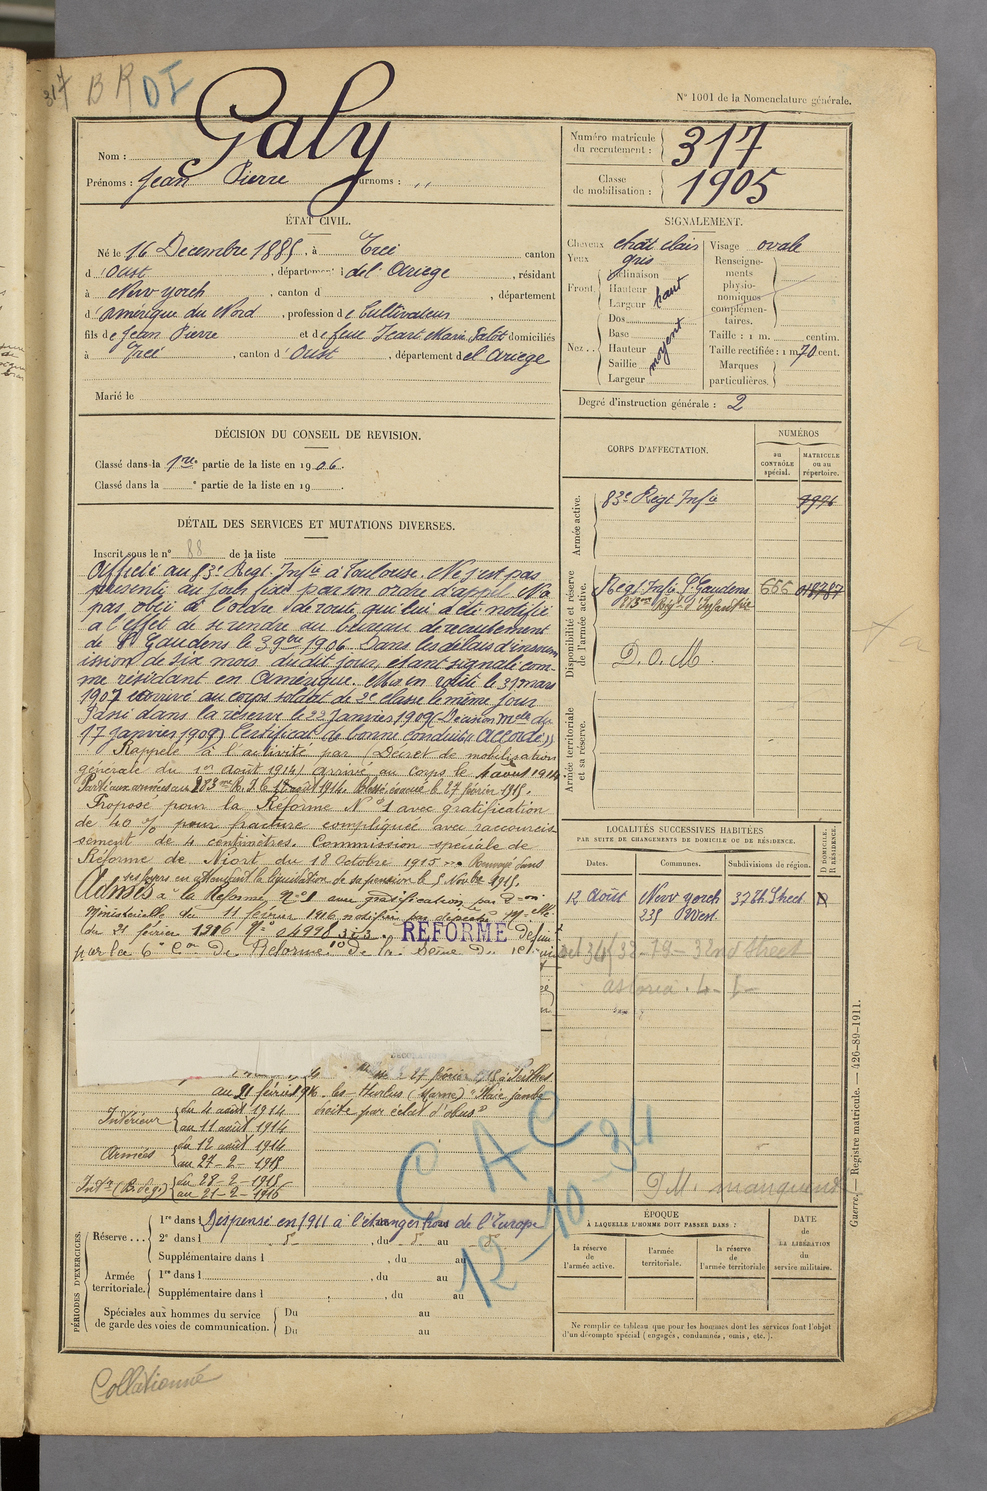 317 B R DI
N° 1001 de la Nomenclature générale.
Nom : Galy
Prénoms : Jean Pierre Surnoms : ,,
Numéro matricule du recrutement : 317
Classe de mobilisation : 1905
ÉTAT CIVIL.
Né le 16 Decembre 1885, à Ercé canton
d'Oust, département de l'Ariege, résidant
à New yorch, canton d , département
d'Amérique du Nord, profession de Cultivateur
fils de Jean Pierre et de feue Jeart Marie domiciliés
à Ercé, canton d'Oust, département de l'Ariege
Marié le
SIGNALEMENT.
Cheveux chat clair
Yeux gris
Front Inclinaison
Hauteur haut
Largeur
Nez Dos
Base moyent
Hauteur
Saillie
Largeur
Visage ovale
Renseignements physionomiques complémentaires.
Taille : 1 m. centim.
Taille rectifiée : 1 m 70 cent.
Marques particulières.
Degré d'instruction générale : 2
DÉCISION DU CONSEIL DE REVISION.
Classé dans la 1re partie de la liste en 1906.
Classé dans la ° partie de la liste en 19
DÉTAIL DES SERVICES ET MUTATIONS DIVERSES.
Inscrit sous le n° 88 de la liste
Affecté au 83e Regt. Infie à Toulouse. Ne s'est pas
présenté au jour fixé par son ordre d'appel. N'a
pas obéi à l'ordre de route, qui lui a été notifié
à l'effet de se rendre au bureau de recrutement
de St Gaudens le 3 9bre 1906. Dans les délais d'insoum
ission de six mois dudit jour, étant signalé com-
me résidant en Amérique. Mis en route le 31 mars
1907 et arrivé au corps soldat de 2e classe le même jour
Passé dans la réserve le 22 Janvier 1909 (Décision Melle du
17 janvier 1909) Certificat de bonne conduite « Accordé »
Rappelé à l'activité par Décret de mobilisation
générale du 1er Août 1914) Arrivé au corps le 4 aout 1914
Parti aux armées au 283me R.I. le 12 août 1914. Blessé évacué le 27 février 1915.
Proposé pour la Réforme N°1 avec gratification
de 40 % pour fracture compliquée avec raccourcis
sement de 4 centimètres. Commission spéciale de
Réforme de Niort du 18 Octobre 1915 Renvoyé dans
ses foyers en attendant la liquidation de sa pension le 5 Novbre 1915.
Admis à la Réforme N°1 avec gratification par Don
Ministérielle du 11 février 1916, notifiée par dépêche Melle
du 21 février 1916 N° 04998 3i3. REFORMÉ
par la 6e Con De Réforme De la Seine Du
27 février 1915 à Perthes
au 21 février 1916 les-Hurlus (Marne) "Plaie jambe
droite par éclat d'obus"
Intérieur du 4 août 1914
au 11 août 1914
Armées du 12 août 1914
au 27-2-1915
Intr (Br de gre) du 28-2-1915
au 21-2-1916
CORPS D'AFFECTATION.
NUMÉROS
au CONTRÔLE spécial.
MATRICULE ou au répertoire.
Armée active.
83e Régt Infie
Disponibilité et réserve de l'armée active.
Regt Infie St Gaudens 666
283me Régt d'Infanterie
D.O.M.
Armée territoriale et sa réserve.
LOCALITÉS SUCCESSIVES HABITÉES
PAR SUITE DE CHANGEMENTS DE DOMICILE OU DE RÉSIDENCE.
Dates. Communes. Subdivisions de région. D DOMICILE. R RÉSIDENCE.
12 Août New yorch 37 th Street D
235 West.
Oct 34 32-19-32nd Street
astoria. L-I-
C A C
12-10-34
D M. manquent
PÉRIODES D'EXERCICES.
Réserve ... 1re dans l Dispensé en 1911 à l'étranger hors de l'Europe
2e dans l , du au
Supplémentaire dans l , du au
Armée territoriale. 1re dans l , du au
Supplémentaire dans l , du au
Spéciales aux hommes du service de garde des voies de communication. Du au
Du au
ÉPOQUE
À LAQUELLE L'HOMME DOIT PASSER DANS :
la réserve de l'armée active.
l'armée territoriale.
la réserve de l'armée territoriale
DATE
DE LA LIBÉRATION
du service militaire.
Ne remplir ce tableau que pour les hommes dont les services font l'objet
d'un décompte spécial (engagés, condamnés, omis, etc.).
Guerre. — Registre matricule. — 426-89-1911.
Collationné